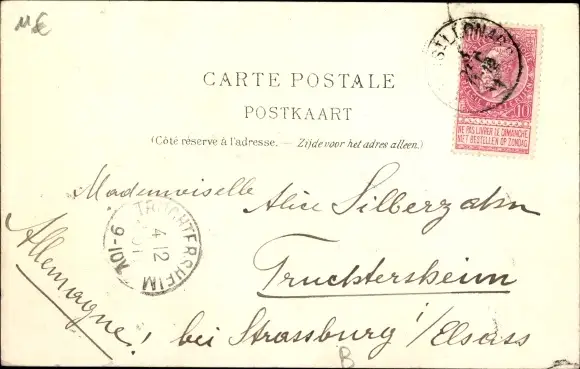 CARTE POSTALE
POSTKAART
(Côté réservé à l'adresse. — Zijde voor het adres alleen.)
10 10
NE PAS LIVRER LE DIMANCHE
NIET BESTELLEN OP ZONDAG
Mademoiselle Alice Silberzahn
TRUCHTERSHEIM
4 12
9-10V
Truchtersheim
Allemagne! bei Strassburg i/Elsass
B